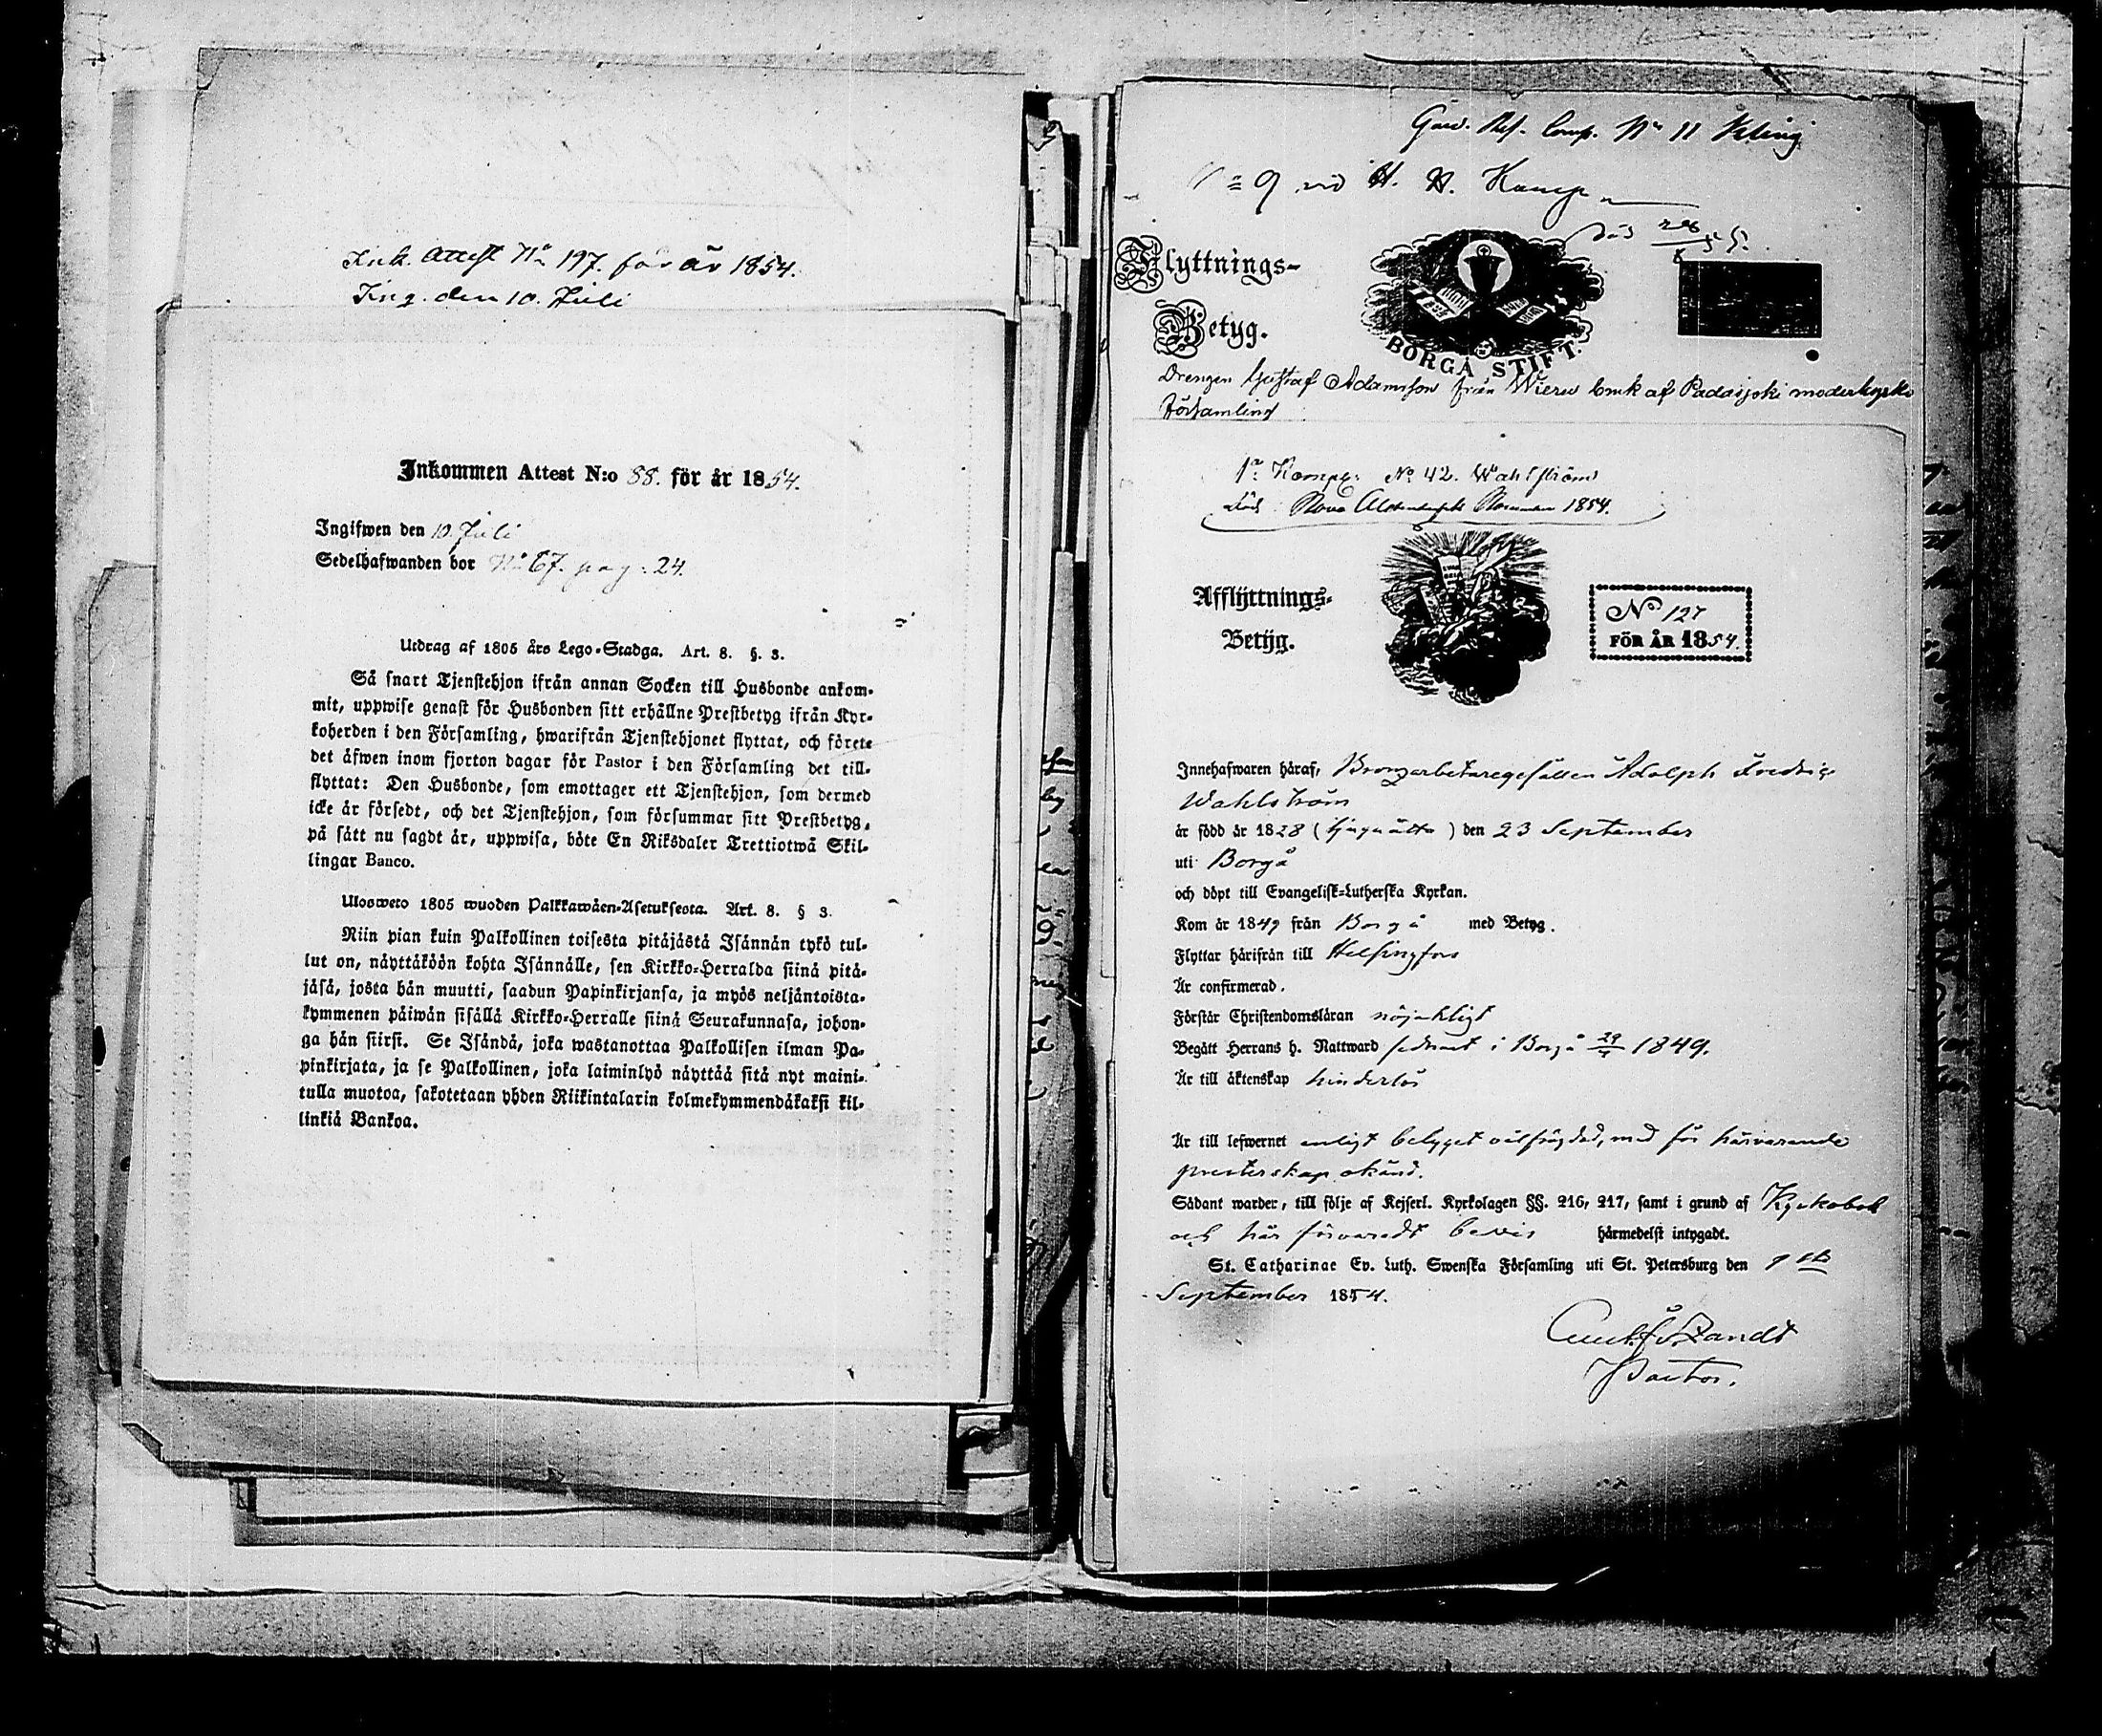 Ink. Attest No 197. för år 1854.
Ing. den 10. Juli
Inkommen Attest N:o 88. för år 1854.
Ingifwen den 10. Juli
Sedelhafwanden bor No 67. pag: 24.
Utdrag af 1805 års Lego-Stadga. Art. 8. §. 3.
Så snart Tjenstehjon ifrån annan Socken till Husbonde ankom-
mit, uppwise genast för Husbonden sitt erhållne Prestbetyg ifrån Kyr-
koherden i den Församling, hwarifrån Tjenstehjonet flyttat, och förete
det äfwen inom fjorton dagar för Pastor i den Församling det till-
flyttat: Den Husbonde, som emottager ett Tjenstehjon, som dermed
icke är försedt, och det Tjenstehjon, som försummar sitt Prestbetyg,
på sätt nu sagdt är, uppwisa, böte En Riksdaler Trettiotwå Skil-
lingar Banco.
Ulosweto 1805 wuoden Palkkawäen-Asetuksesta. Art. 8. § 3.
Niin pian kuin Palkollinen toisesta pitäjästä Isännän tykö tul-
lut on, näyttäköön kohta Isännälle, sen Kirkko-Herralda siinä pitä-
jäsä, josta hän muutti, saadun Papinkirjansa, ja myös neljäntoista-
kymmenen päiwän sisällä Kirkko-Herralle siinä Seurakunnasa, johon-
ga hän siirsi. Se Isändä, joka wastanottaa Palkollisen ilman Pa-
pinkirjata, ja se Palkollinen, joka laiminlyö näyttää sitä nyt maini-
tulla muotoa, sakotetaan yhden Riikintalarin kolmekymmendäkaksi kil-
linkiä Bankoa.
Comp. No 11 Kling
No 9 vid
Flyttnings-
Betyg.
BORGÅ STIFT.
Drengen Gustaf Adamsson från Wieru bruk af Padasjoki moderkyrko
församling
1a Komp: No 42. Wahlström
död November 1854.
Afflyttnings-
Betyg.
No 127
FÖR ÅR 1854.
Innehafwaren häraf, Bronzarbetaregesällen Adolph Fredric
Wahlström
är född år 1828 (tjuguåtta) den 23 September
uti Borgå
och döpt till Evangelisk-Lutherska Kyrkan.
Kom år 1849 från Borgå med Betyg.
Flyttar härifrån till Helsingfors
Är confirmerad.
Förstår Christendomsläran nöjaktligt
Begått Herrans h. Nattward sednast i Borgå 1849.
Är till äktenskap hinderlös
Är till lefwernet enligt betyget välfrägdad, men för härvarande
presterskap okänd.
Sådant warder, till följe af Kejserl. Kyrkolagen §§. 216, 217, samt i grund af Kyrkobok
och här förvaradt bevis härmedelst intygadt.
St. Catharinae Ev. Luth. Swenska Församling uti St. Petersburg den 9
September 1854.
Pastor.